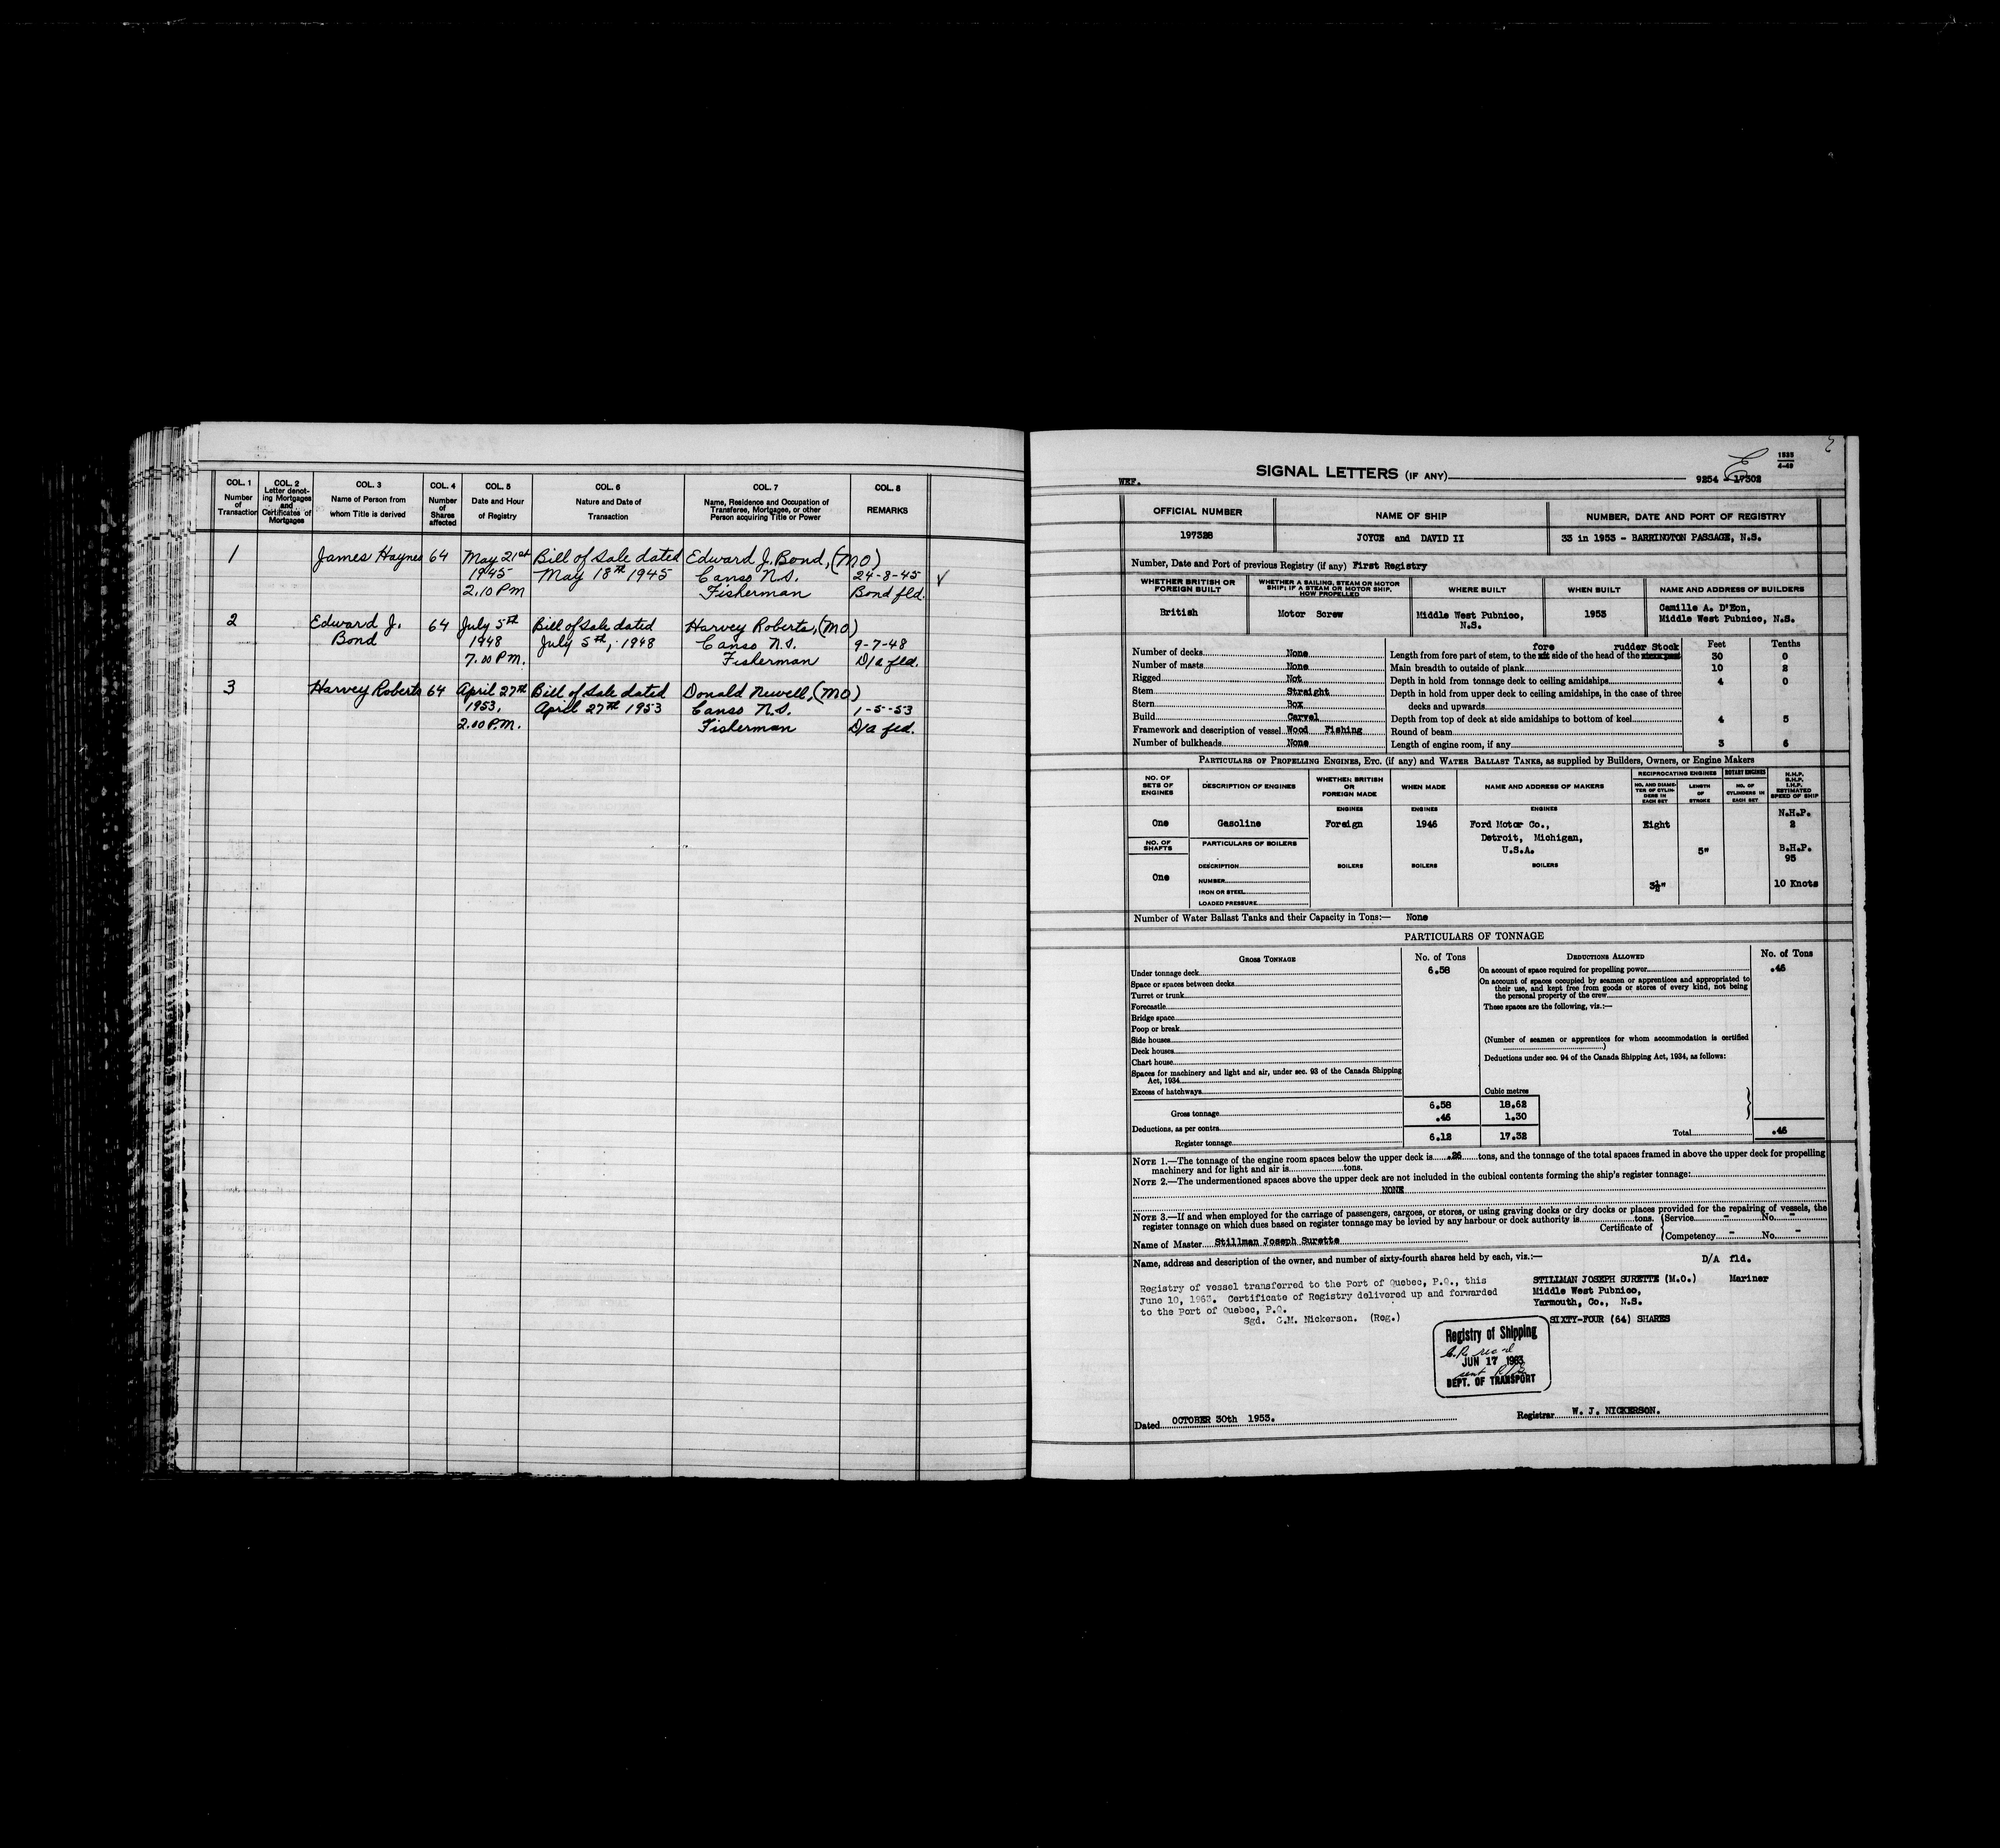 COL. 1 COL. 2 COL. 3 COL. 4 COL. 5 COL. 6 COL. 7 COL. 8
Number of Transaction
Letter denoting Mortgages and Certificates of Mortgages
Name of Person from whom Title is derived
Number of Shares affected
Date and Hour of Registry
Nature and Date of Transaction
Name, Residence and Occupation of Transferee, Mortgagee, or other Person acquiring Title or Power
REMARKS
1 James Haynes 64 May 21st Bill of Sale dated Edward J. Bond, (MO)
1945 May 18th 1945 Canso N.S. 24-8-45
2.10 PM Fisherman Bond fld.
2 Edward J. 64 July 5th Bill of Sale dated Harvey Roberts, (MO)
Bond 1948 July 5th, 1948 Canso N.S. 9-7-48
7.00 P.M. Fisherman D/a fld.
3 Harvey Roberts 64 April 27th Bill of Sale dated Donald Newell, (MO)
1953, April 27th 1953 Canso N.S. 1-5-53
2.00 P.M. Fisherman D/a fld.
1535
4-49
SIGNAL LETTERS (IF ANY) 9254 - 17302
WKF.
OFFICIAL NUMBER NAME OF SHIP NUMBER, DATE AND PORT OF REGISTRY
197328 JOYCE and DAVID II 33 in 1953 - BARRINGTON PASSAGE, N.S.
Number, Date and Port of previous Registry (if any) First Registry
WHETHER BRITISH OR FOREIGN BUILT
WHETHER A SAILING, STEAM OR MOTOR SHIP; IF A STEAM OR MOTOR SHIP, HOW PROPELLED
WHERE BUILT WHEN BUILT NAME AND ADDRESS OF BUILDERS
British Motor Screw Middle West Pubnico, N.S. 1953 Camille A. D'Eon,
Middle West Pubnico, N.S.
Feet Tenths
Number of decks None
Number of masts None
Rigged Not
Stem Straight
Stern Box
Build Carvel
Framework and description of vessel Wood Fishing
Number of bulkheads None
fore rudder Stock
Length from fore part of stem, to the side of the head of the 30 0
Main breadth to outside of plank 10 2
Depth in hold from tonnage deck to ceiling amidships 4 0
Depth in hold from upper deck to ceiling amidships, in the case of three
decks and upwards
Depth from top of deck at side amidships to bottom of keel 4 5
Round of beam
Length of engine room, if any 3 6
PARTICULARS OF PROPELLING ENGINES, ETC. (if any) and WATER BALLAST TANKS, as supplied by Builders, Owners, or Engine Makers
NO. OF SETS OF ENGINES
DESCRIPTION OF ENGINES
WHETHER BRITISH OR FOREIGN MADE
WHEN MADE
NAME AND ADDRESS OF MAKERS
RECIPROCATING ENGINES ROTARY ENGINES
NO. AND DIAMETER OF CYLINDERS IN EACH SET
LENGTH OF STROKE
NO. OF CYLINDERS IN EACH SET
N.H.P.
B.H.P.
I.H.P.
ESTIMATED SPEED OF SHIP
ENGINES ENGINES ENGINES
One Gasoline Foreign 1946 Ford Motor Co., Eight N.H.P.
Detroit, Michigan, 2
U.S.A. 5" B.H.P.
95
NO. OF SHAFTS PARTICULARS OF BOILERS
BOILERS BOILERS BOILERS
DESCRIPTION
One NUMBER 3½" 10 Knots
IRON OR STEEL
LOADED PRESSURE
Number of Water Ballast Tanks and their Capacity in Tons:— None
PARTICULARS OF TONNAGE
GROSS TONNAGE No. of Tons DEDUCTIONS ALLOWED No. of Tons
Under tonnage deck 6.58
Space or spaces between decks
Turret or trunk
Forecastle
Bridge space
Poop or break
Side houses
Deck houses
Chart house
Spaces for machinery and light and air, under sec. 93 of the Canada Shipping
Act, 1934
Excess of hatchways Cubic metres
Gross tonnage 6.58 18.62
Deductions, as per contra .46 1.30
Register tonnage 6.12 17.32
On account of space required for propelling power .46
On account of spaces occupied by seamen or apprentices and appropriated to
their use, and kept free from goods or stores of every kind, not being
the personal property of the crew
These spaces are the following, viz.:—
(Number of seamen or apprentices for whom accommodation is certified
)
Deductions under sec. 94 of the Canada Shipping Act, 1934, as follows:
Total .46
NOTE 1.—The tonnage of the engine room spaces below the upper deck is .26 tons, and the tonnage of the total spaces framed in above the upper deck for propelling
machinery and for light and air is tons.
NOTE 2.—The undermentioned spaces above the upper deck are not included in the cubical contents forming the ship's register tonnage:
NONE
NOTE 3.—If and when employed for the carriage of passengers, cargoes, or stores, or using graving docks or dry docks or places provided for the repairing of vessels, the
register tonnage on which dues based on register tonnage may be levied by any harbour or dock authority is tons.
Certificate of Service - No. -
Competency - No. -
Name of Master Stillman Joseph Surette
Name, address and description of the owner, and number of sixty-fourth shares held by each, viz.:— D/A fld.
Registry of vessel transferred to the Port of Quebec, P.Q., this
June 10, 1963. Certificate of Registry delivered up and forwarded
to the Port of Quebec, P.Q.
Sgd. C.M. Nickerson. (Reg.)
STILLMAN JOSEPH SURETTE (M.O.) Mariner
Middle West Pubnico,
Yarmouth, Co., N.S.
SIXTY-FOUR (64) SHARES
Registry of Shipping
JUN 17 1963
DEPT. OF TRANSPORT
Dated OCTOBER 30th 1953. Registrar W. J. NICKERSON.